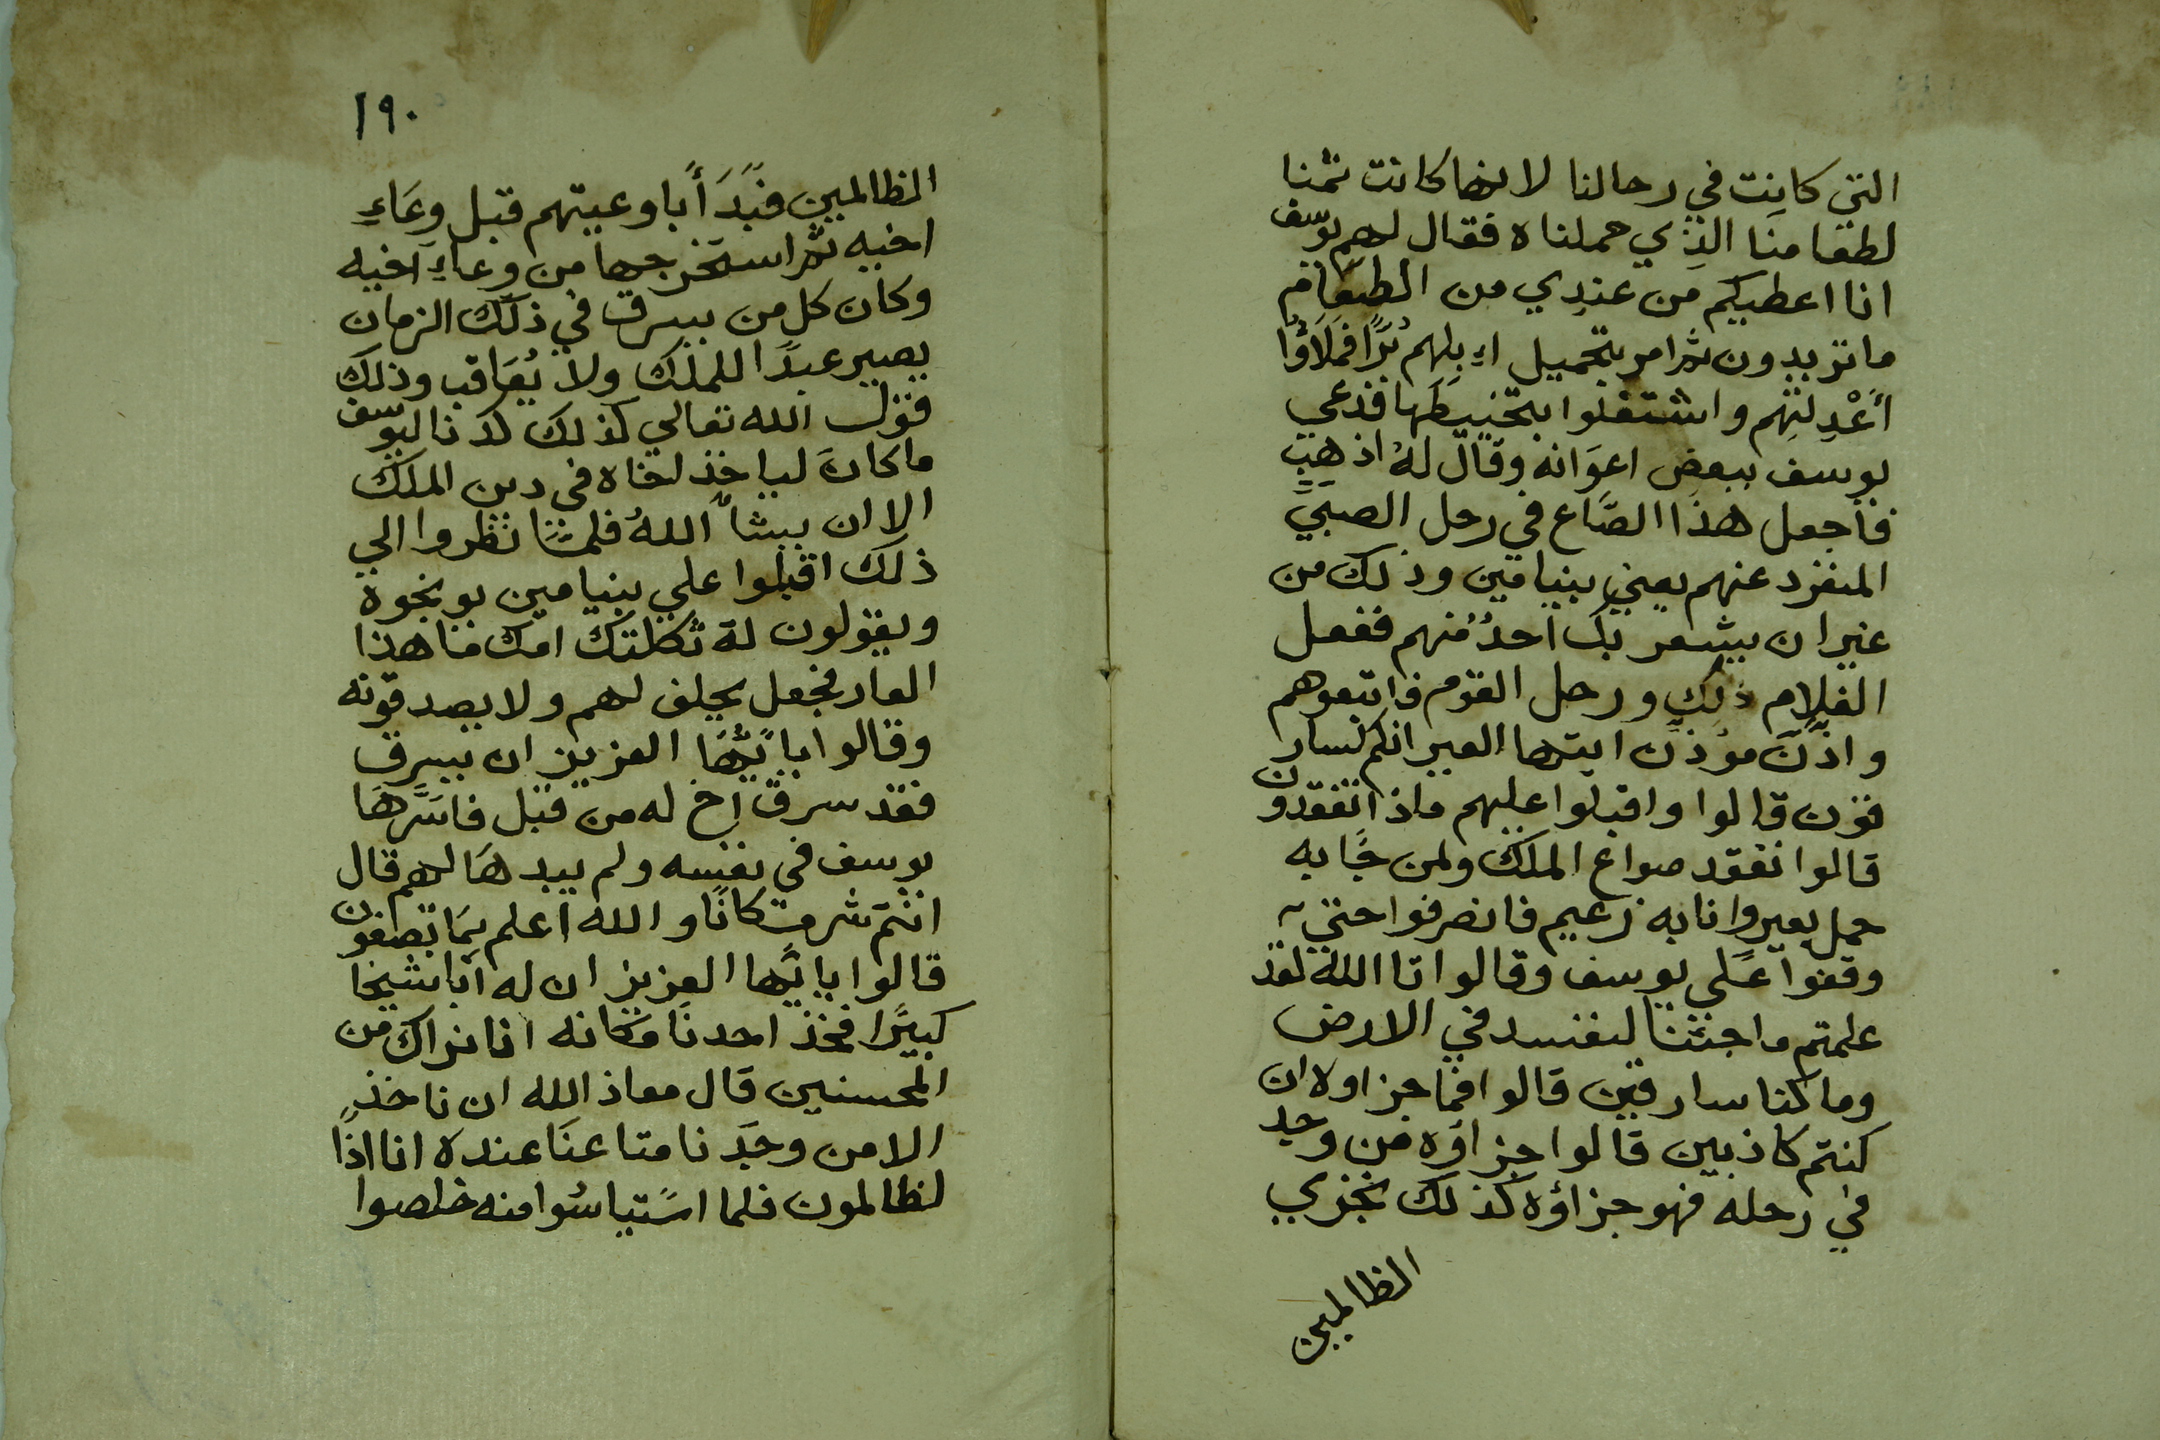 التي كانت في رحالنا لانها كانت ثمنا
لطعامنا الذي حملناه فقال لهم يوسف
انا اعطيكم من عندي من الطعام
ما تريدون ثم امر بتحميل ابلهم برًا فملاؤا
أعْدِلتِهم واشتغلوا بتخييطها فدعي
يوسف ببعض اعوانه وقال لهُ اذهب
فاجعل هذا الصَّاع في رحل الصبيَّ
المنفرد عنهم يعني بنيامين وذلك من
غير ان يشعر بك احدٌ منهم ففعل
الغلام ذلك ورحل القوم فاتبعوهم
واذَّن موُذنٌ ايتها العير انكم لسار
قون قالوا واقبلوا عليهم ماذا تفقدون
قالوا نفقد صواع الملك ولمن جَّا به
حمل بعير وانا به زعيم فانصرفوا حتي
وقفوا علي يوسف وقالوا تا الله لقد
علمتم ما جئنا لنفسد في الارض
وما كنا سارقين قالوا فما جزاوه ان
كنتم كاذبين قالوا جزاوه من وجد
في رحله فهو جزاؤه كذلك نجزي
الظالمين
١٩٠
الظالمين فبَدَأ باوعيتهم قبل وعَاءِ
اخيه ثم استخرجها من وعاءِ اخيه
وكان كل من يسرق في ذلك الزمان
يصير عبدًا للملك ولا يُعَاقب وذلك
قول الله تعالي كذلك كدنا ليوسف
ما كان لياخذ اخاه في دين الملك
الا ان يشاء اللهُ فلمَّا نظروا الي
ذلك اقبلوا علي بنيامين يوبخوه
ويقولون له ثكلتك امك ما هذا
العار فجعل يحلف لهم ولا يصدقونه
وقالوا يا ايُّهَا العزيز ان يسرق
فقد سرق اخ له من قبل فاسَرَّهَا
يوسف في نفسه ولم يبدهَا لهم قال
انتم شر مكانًا والله اعلم بمَا تصفون
قالوا يا ايُّها العزيز ان له ابًا شيخا
كبيرًا فخذ احدنا مكانه انا نراك من
المحسنين قال معاذ الله ان ناخذ
الا من وجَدنا متاعنَا عنده انا اذًا
لظالمون فلما استياسُوا منه خلصوا